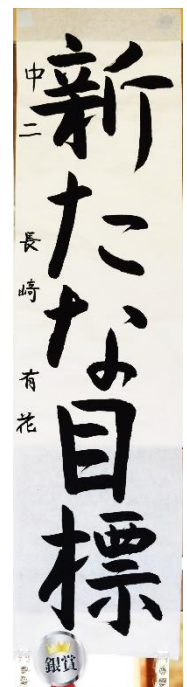 新たな目標
中二 長崎有花
銀賞